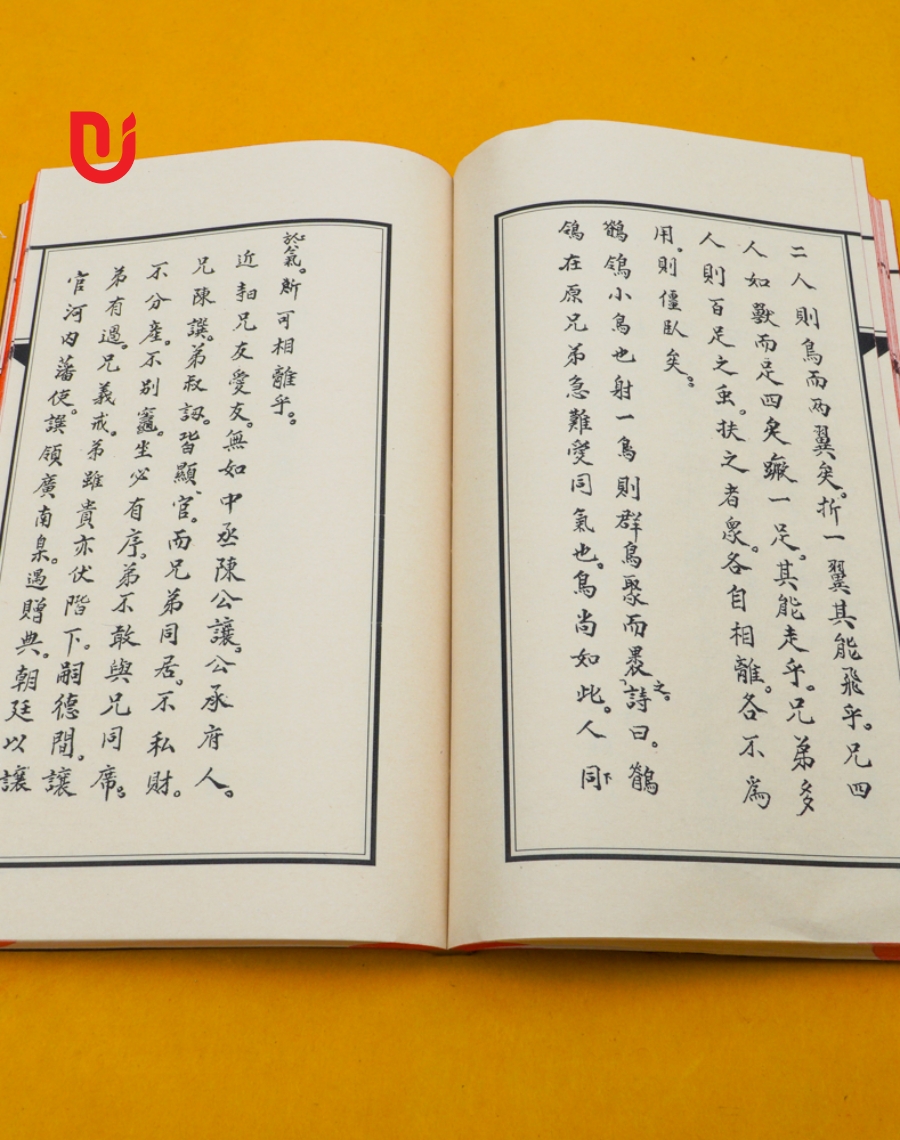 二人則鳥而兩翼矣。折一翼其能飛乎。兄四
人如獸而足四矣蹶一足。其能走乎。兄弟多
人則百足之虫。扶之者衆。各自相離。各不爲
用。則僵臥矣。
鶺鴒小鳥也射一鳥則群鳥聚而畏之。詩曰。鶺
鴒在原兄弟急難愛同氣也。鳥尚如此。人同
於气氣。斯可相離乎。
近和兄友愛友。無如中丞陳公讓。公承府人。
兄陳譔。弟叔訒。皆顯官。而兄弟同居。不私財。
不分產。不別竈。坐必有序。弟不敢與兄同席。
弟有過。兄義戒。弟雖貴亦伏階下。嗣德間。讓
官河内藩使。譔領廣南臬。遇贈典。朝廷以讓